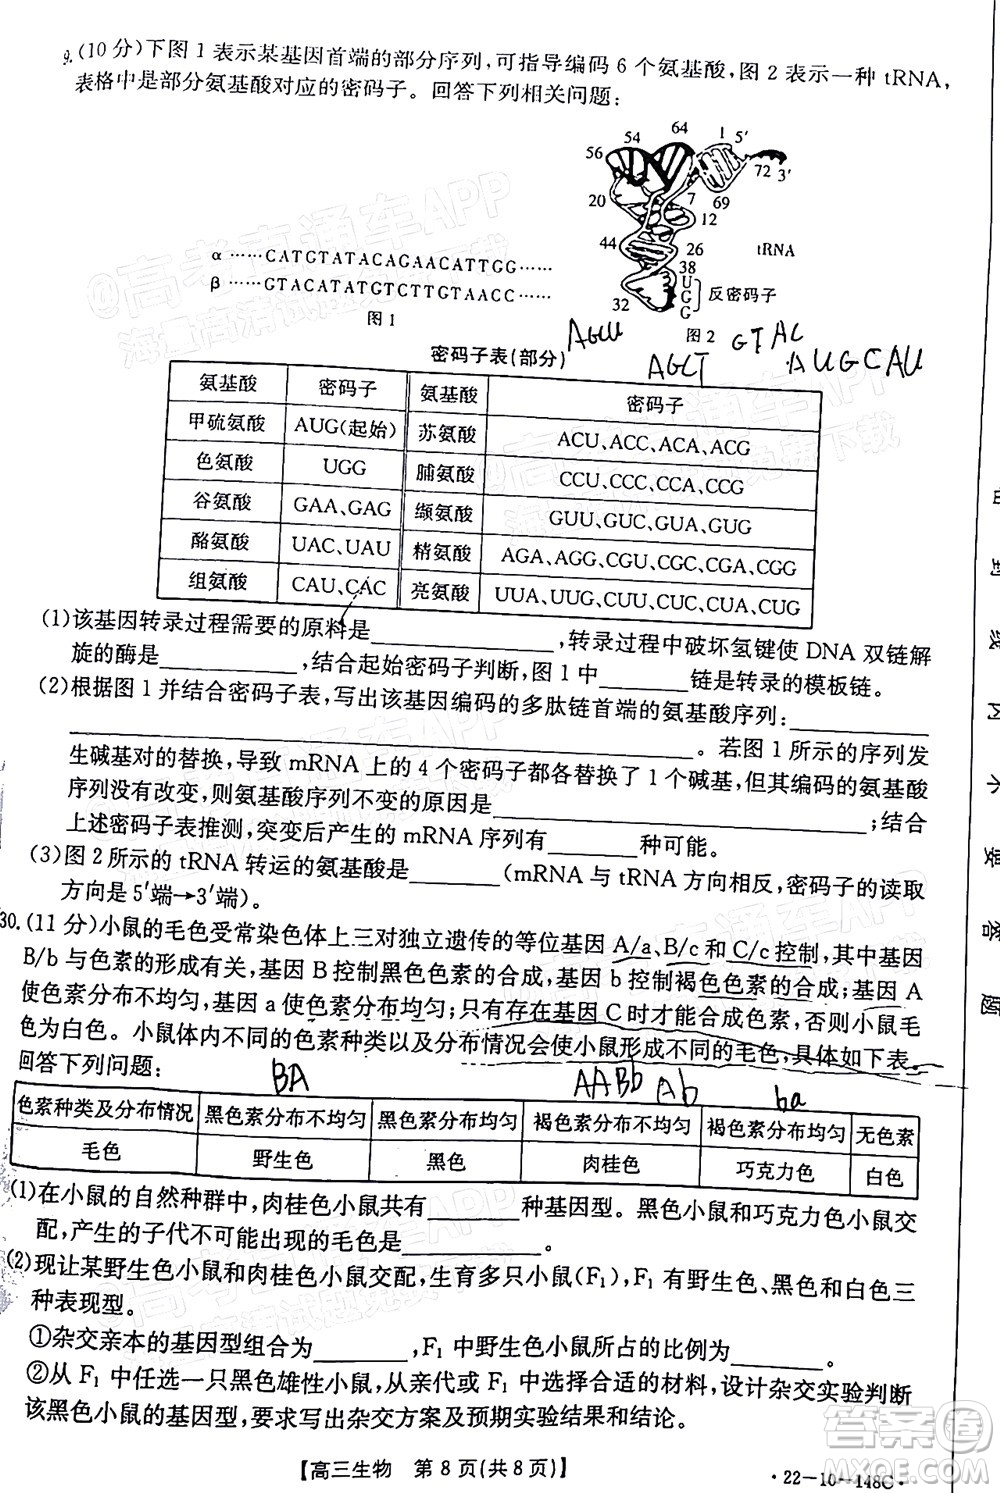 9.(10分)下图1表示某基因首端的部分序列,可指导编码6个氨基酸,图2表示一种tRNA,
表格中是部分氨基酸对应的密码子。回答下列相关问题:
54 64 1 5′
56 72 3′
20 7 69
12
44 26 tRNA
38
32 U G G 反密码子
α ……CATGTATACAGAACATTGG……
β ……GTACATATGTCTTGTAACC……
图1
图2
AGCU
AGCT
GTAC
AUGCAU
密码子表(部分)
氨基酸 密码子 氨基酸 密码子
甲硫氨酸 AUG(起始) 苏氨酸 ACU、ACC、ACA、ACG
色氨酸 UGG 脯氨酸 CCU、CCC、CCA、CCG
谷氨酸 GAA、GAG 缬氨酸 GUU、GUC、GUA、GUG
酪氨酸 UAC、UAU 精氨酸 AGA、AGG、CGU、CGC、CGA、CGG
组氨酸 CAU、CAC 亮氨酸 UUA、UUG、CUU、CUC、CUA、CUG
(1)该基因转录过程需要的原料是________,转录过程中破坏氢键使DNA双链解
旋的酶是________,结合起始密码子判断,图1中________链是转录的模板链。
(2)根据图1并结合密码子表,写出该基因编码的多肽链首端的氨基酸序列:________
________。若图1所示的序列发
生碱基对的替换,导致mRNA上的4个密码子都各替换了1个碱基,但其编码的氨基酸
序列没有改变,则氨基酸序列不变的原因是________;结合
上述密码子表推测,突变后产生的mRNA序列有________种可能。
(3)图2所示的tRNA转运的氨基酸是________(mRNA与tRNA方向相反,密码子的读取
方向是5′端→3′端)。
30.(11分)小鼠的毛色受常染色体上三对独立遗传的等位基因A/a、B/c和C/c控制,其中基因
B/b与色素的形成有关,基因B控制黑色色素的合成,基因b控制褐色色素的合成;基因A
使色素分布不均匀,基因a使色素分布均匀;只有存在基因C时才能合成色素,否则小鼠毛
色为白色。小鼠体内不同的色素种类以及分布情况会使小鼠形成不同的毛色,具体如下表。
回答下列问题:
BA
AABb Ab
ba
色素种类及分布情况 黑色素分布不均匀 黑色素分布均匀 褐色素分布不均匀 褐色素分布均匀 无色素
毛色 野生色 黑色 肉桂色 巧克力色 白色
(1)在小鼠的自然种群中,肉桂色小鼠共有________种基因型。黑色小鼠和巧克力色小鼠交
配,产生的子代不可能出现的毛色是________。
(2)现让某野生色小鼠和肉桂色小鼠交配,生育多只小鼠(F₁),F₁有野生色、黑色和白色三
种表现型。
①杂交亲本的基因型组合为________,F₁中野生色小鼠所占的比例为________。
②从F₁中任选一只黑色雄性小鼠,从亲代或F₁中选择合适的材料,设计杂交实验判断
该黑色小鼠的基因型,要求写出杂交方案及预期实验结果和结论。
【高三生物 第8页(共8页)】
·22-10-148C·
封
线
内
不
要
答
题
高考直通车APP
海量高清试题免费下载
答案圈
MXQE.COM